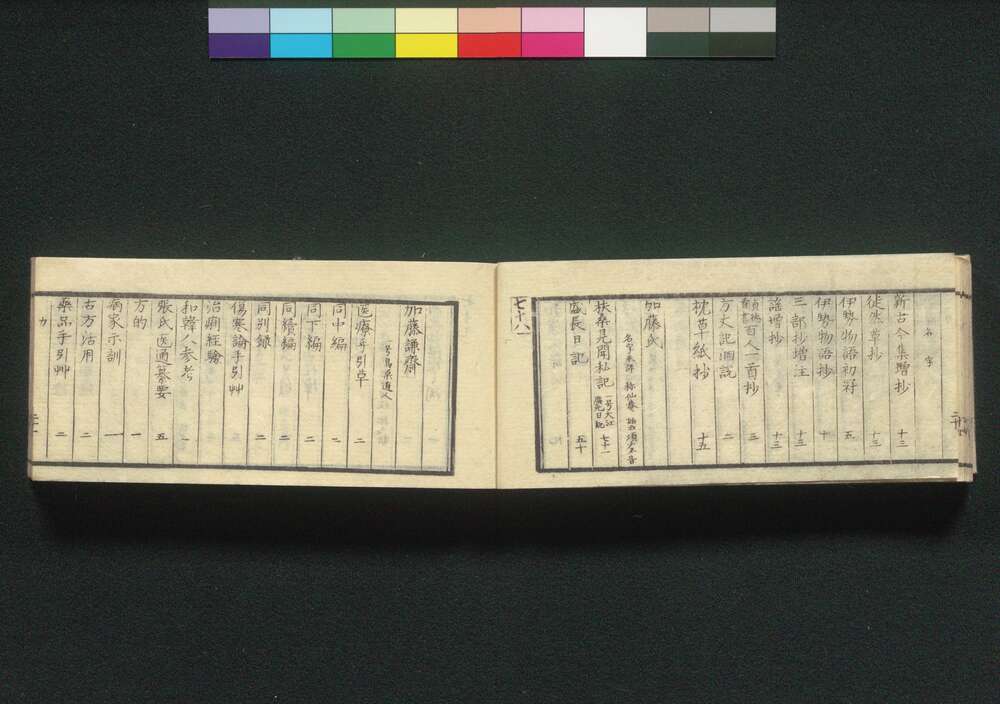 新古今集増抄 十三
徒然草抄 十三
伊勢物語初冠 五
伊勢物語抄 十
三部抄増注 十三
謡増抄 十三
百人一首抄 三
方丈記泗説 二
枕草紙抄 十五
加藤氏
扶桑見聞私記 一号大江廣元日記 七十一
盛長日記 五十
七十八
加藤謙齋 一号烏巣道人
医療手引草 二
同中編 二
同下編 二
同續編 二
同別録 二
傷寒論手引艸 二
治痢経験
和韓人参考 一
張氏医通纂要 五
方的 一
病家示訓 一
古方活用 二
薬品手引艸 二
カ